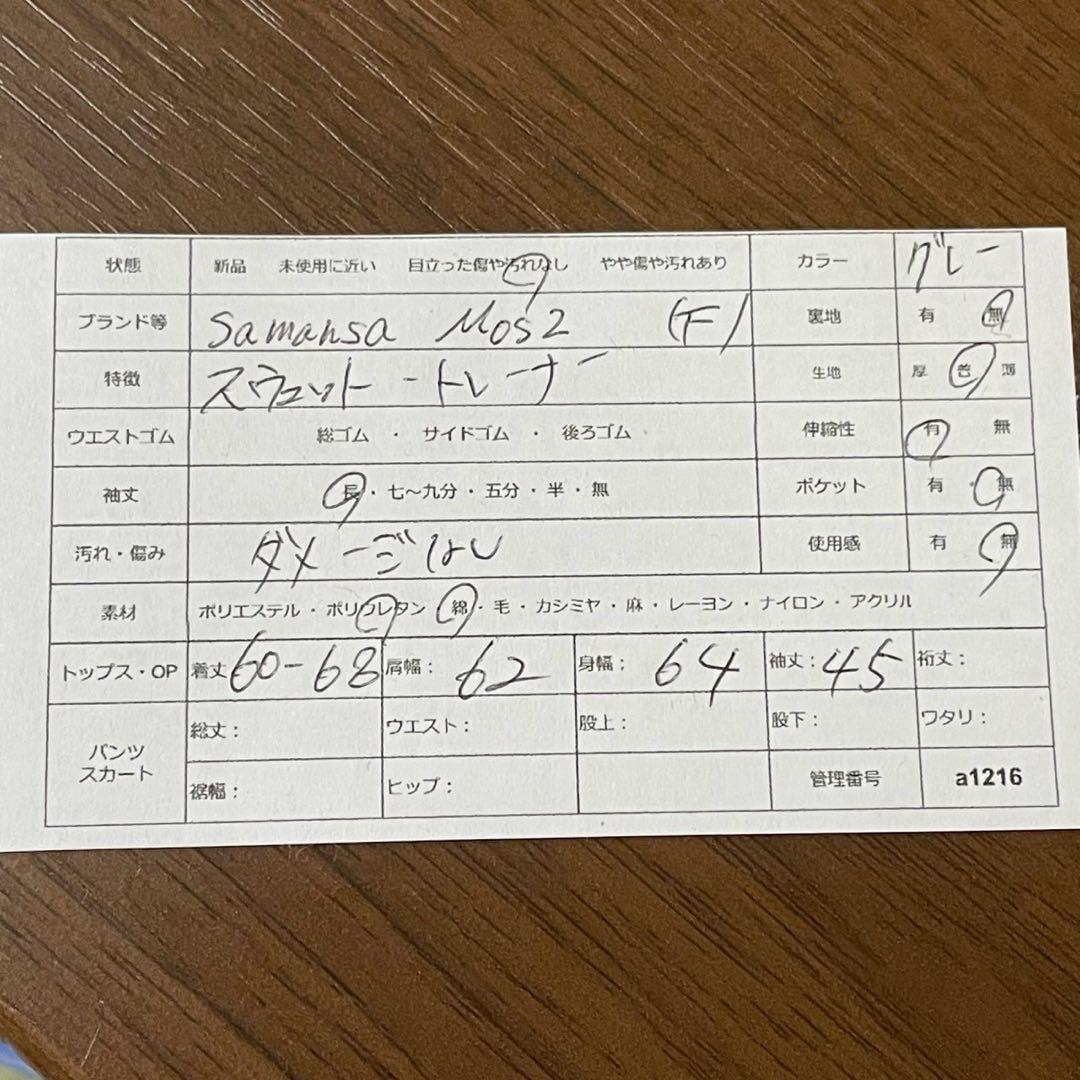 状態 新品 未使用に近い 目立った傷や汚れなし やや傷や汚れあり カラー グレー
ブランド等 Samansa Mos2 (F) 裏地 有 無
特徴 スウェット・トレーナー 生地 厚 普 薄
ウエストゴム 総ゴム ・ サイドゴム ・ 後ろゴム 伸縮性 有 無
袖丈 長・七～九分・五分・半・無 ポケット 有・無
汚れ・傷み ダメージなし 使用感 有 無
素材 ポリエステル・ポリウレタン 綿・毛・カシミヤ・麻・レーヨン・ナイロン・アクリル
トップス・OP 着丈 60-68 肩幅： 62 身幅： 64 袖丈：45 裄丈：
パンツ スカート 総丈： ウエスト： 股上： 股下： ワタリ：
裾幅： ヒップ： 管理番号 a1216